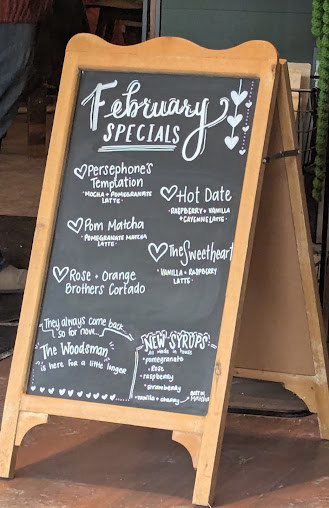 February
SPECIALS
Persephone's
Temptation
· MOCHA + POMEGRANATE
LATTE ·
Hot Date
· RASPBERRY + VANILLA
+ CAYENNE LATTE ·
Pom Matcha
· POMEGRANATE MATCHA
LATTE ·
The Sweetheart
· VANILLA + RASPBERRY
LATTE ·
Rose + Orange
Brothers Cortado
They always come back
so for now...
The Woodsman
is here for a little longer
NEW SYRUPS
All made in house
• pomegranate
• Rose
• raspberry
• strawberry
• vanilla + cherry
BEST IN
MATCHA